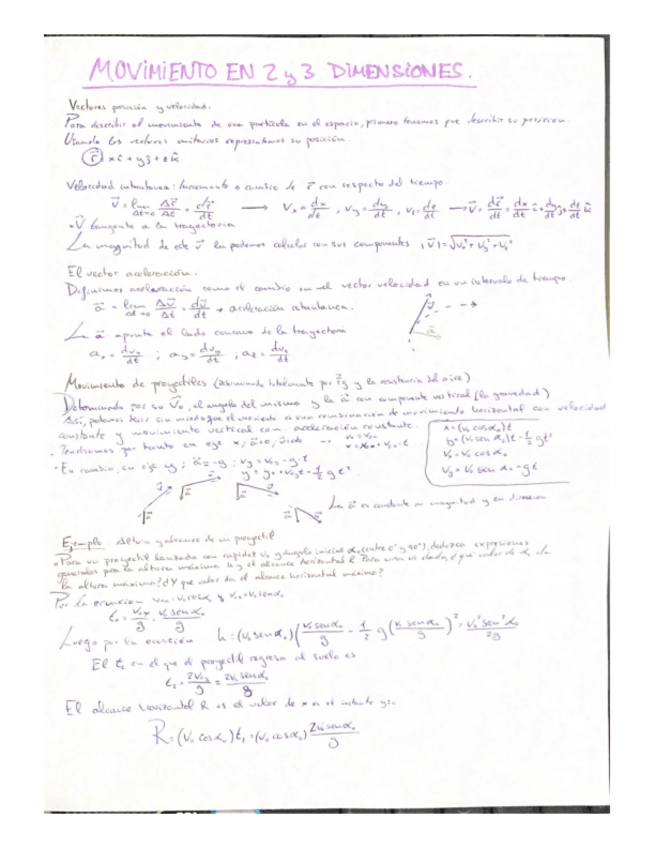 MOVIMIENTO EN 2 y 3 DIMENSIONES.
Vectores posición y velocidad.
Para describir el movimiento de una partícula en el espacio, primero tenemos que describir su posición.
Usando los vectores unitarios representamos su posición.
r⃗ = xî + yĵ + zk̂
Velocidad instantánea: Incremento o cambio de r⃗ con respecto del tiempo.
v⃗ = lim Δt→0 Δr⃗/Δt = dr⃗/dt → Vx = dx/dt , Vy = dy/dt , Vz = dz/dt → v⃗ = dr⃗/dt = dx/dt î + dy/dt ĵ + dz/dt k̂
• v⃗ tangente a la trayectoria
La magnitud de este v⃗ la podemos calcular con sus componentes |v⃗| = √Vx² + Vy² + Vz²
El vector aceleración.
Definimos aceleración como el cambio en el vector velocidad en un intervalo de tiempo.
a⃗ = lim Δt→0 Δv⃗/Δt = dv⃗/dt → aceleración instantanea.
La a⃗ apunta al lado concavo de la trayectoria
ax = dvx/dt ; ay = dvy/dt ; az = dvz/dt
Movimiento de proyectiles (Determinando totalmente por g⃗ y la resistencia del aire)
Determinado por su V⃗o, el angulo del mismo y la a⃗ con componente vertical (la gravedad)
Así, podemos decir sin miedo que el movimiento es una combinación de movimiento horizontal con velocidad
constante y movimiento vertical con aceleración constante.
• Tendremos por tanto en eje x; a⃗=0;
x = (Vo cosαo)t
y = (Vo sen αo)t - 1/2 gt²
Vx = Vo cosαo
Vy = Vo sen αo - gt
• En cambio, en eje y; a⃗ = -g ; Vy = Voy - g·t
y = yo + Voy t - 1/2 g t²
La a⃗ es constante en magnitud y en direccion
Ejemplo. Altura y alcance de un proyectil
• Para un proyectil lanzado con rapidez Vo y ángulo inicial αo (entre 0° y 90°), deduzca expresiones
generales para la altura máxima h y el alcance horizontal R. Para una Vo dada, ¿qué valor de αo da
la altura máxima? ¿Y que valor da el alcance horizontal máximo?
Por la ecuacion Vox = Vo cosαo y Voy = Vo senαo
t1 = Voy/g = Vo senαo/g
Luego por la ecuación h = (Vo senαo)(Vo senαo/g - 1/2 g(Vo senαo/g)² = Vo² sen² αo/2g
El t2 en el que el proyectil regresa al suelo es
t2 = 2Voy/g = 2Vo senαo/g
El alcance horizontal R es el valor de x en el instante
R = (Vo cosαo)t2 = (Vo cosαo) 2Vo senαo/g